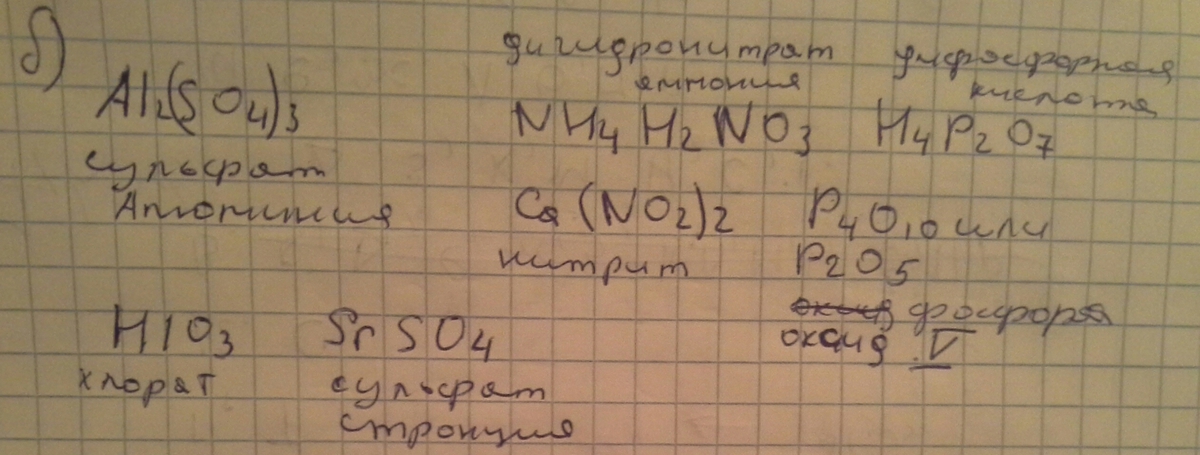 б)
Al2(SO4)3
сульфат
Алюминия
дигидронитрат
аммония
NH4 H2 NO3
дифосфорная
кислота
H4P2O7
Ca(NO2)2
нитрит
P4O10 или
P2O5
фосфора
оксид V
HIO3
хлорат
SrSO4
сульфат
стронция